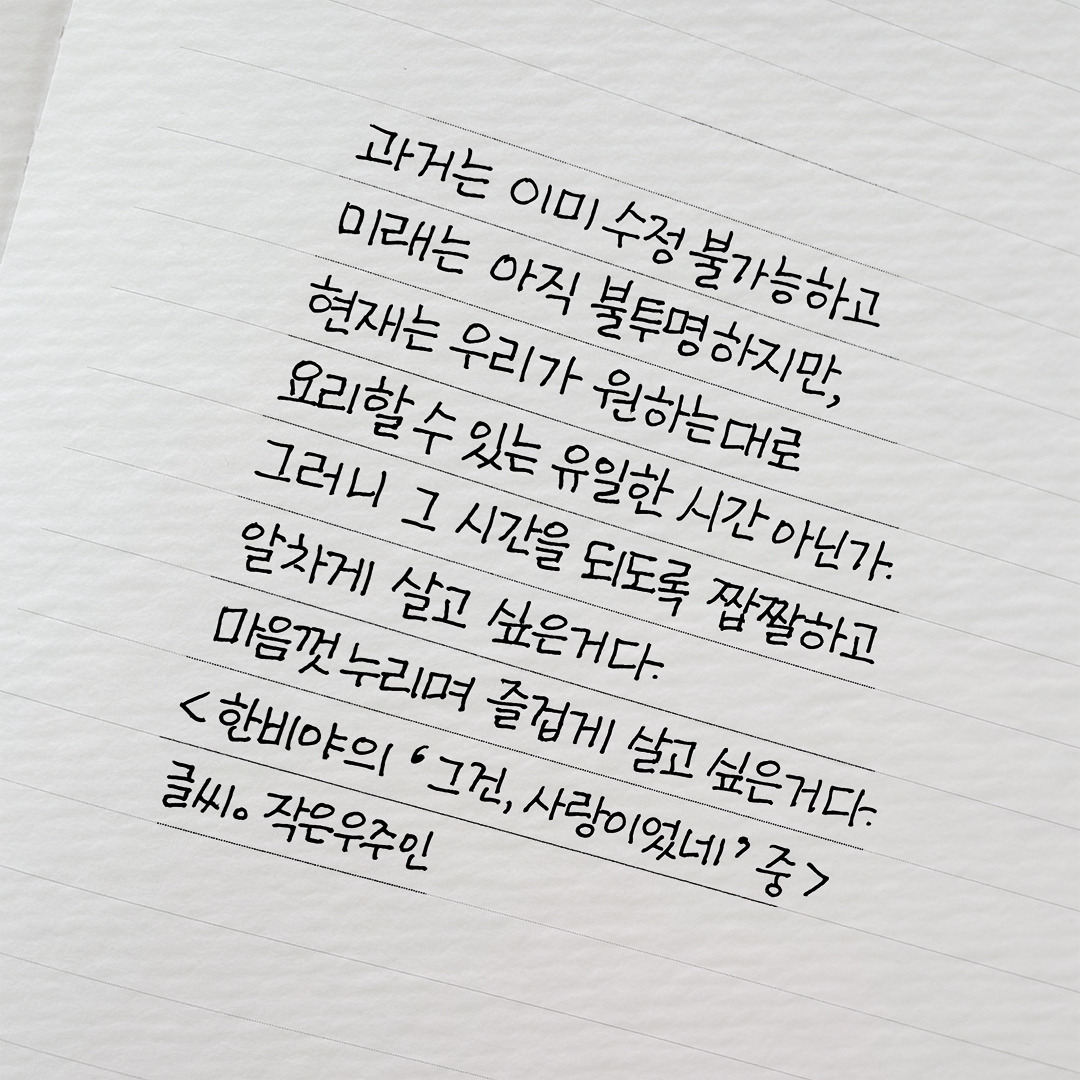 과거는 이미 수정 불가능하고
미래는 아직 불투명하지만,
현재는 우리가 원하는대로
요리할 수 있는 유일한 시간 아닌가.
그러니 그 시간을 되도록 짭짤하고
알차게 살고 싶은거다.
마음껏 누리며 즐겁게 살고 싶은거다.
<한비야의 ‘그건, 사랑이었네’ 중>
글씨。작은우주인